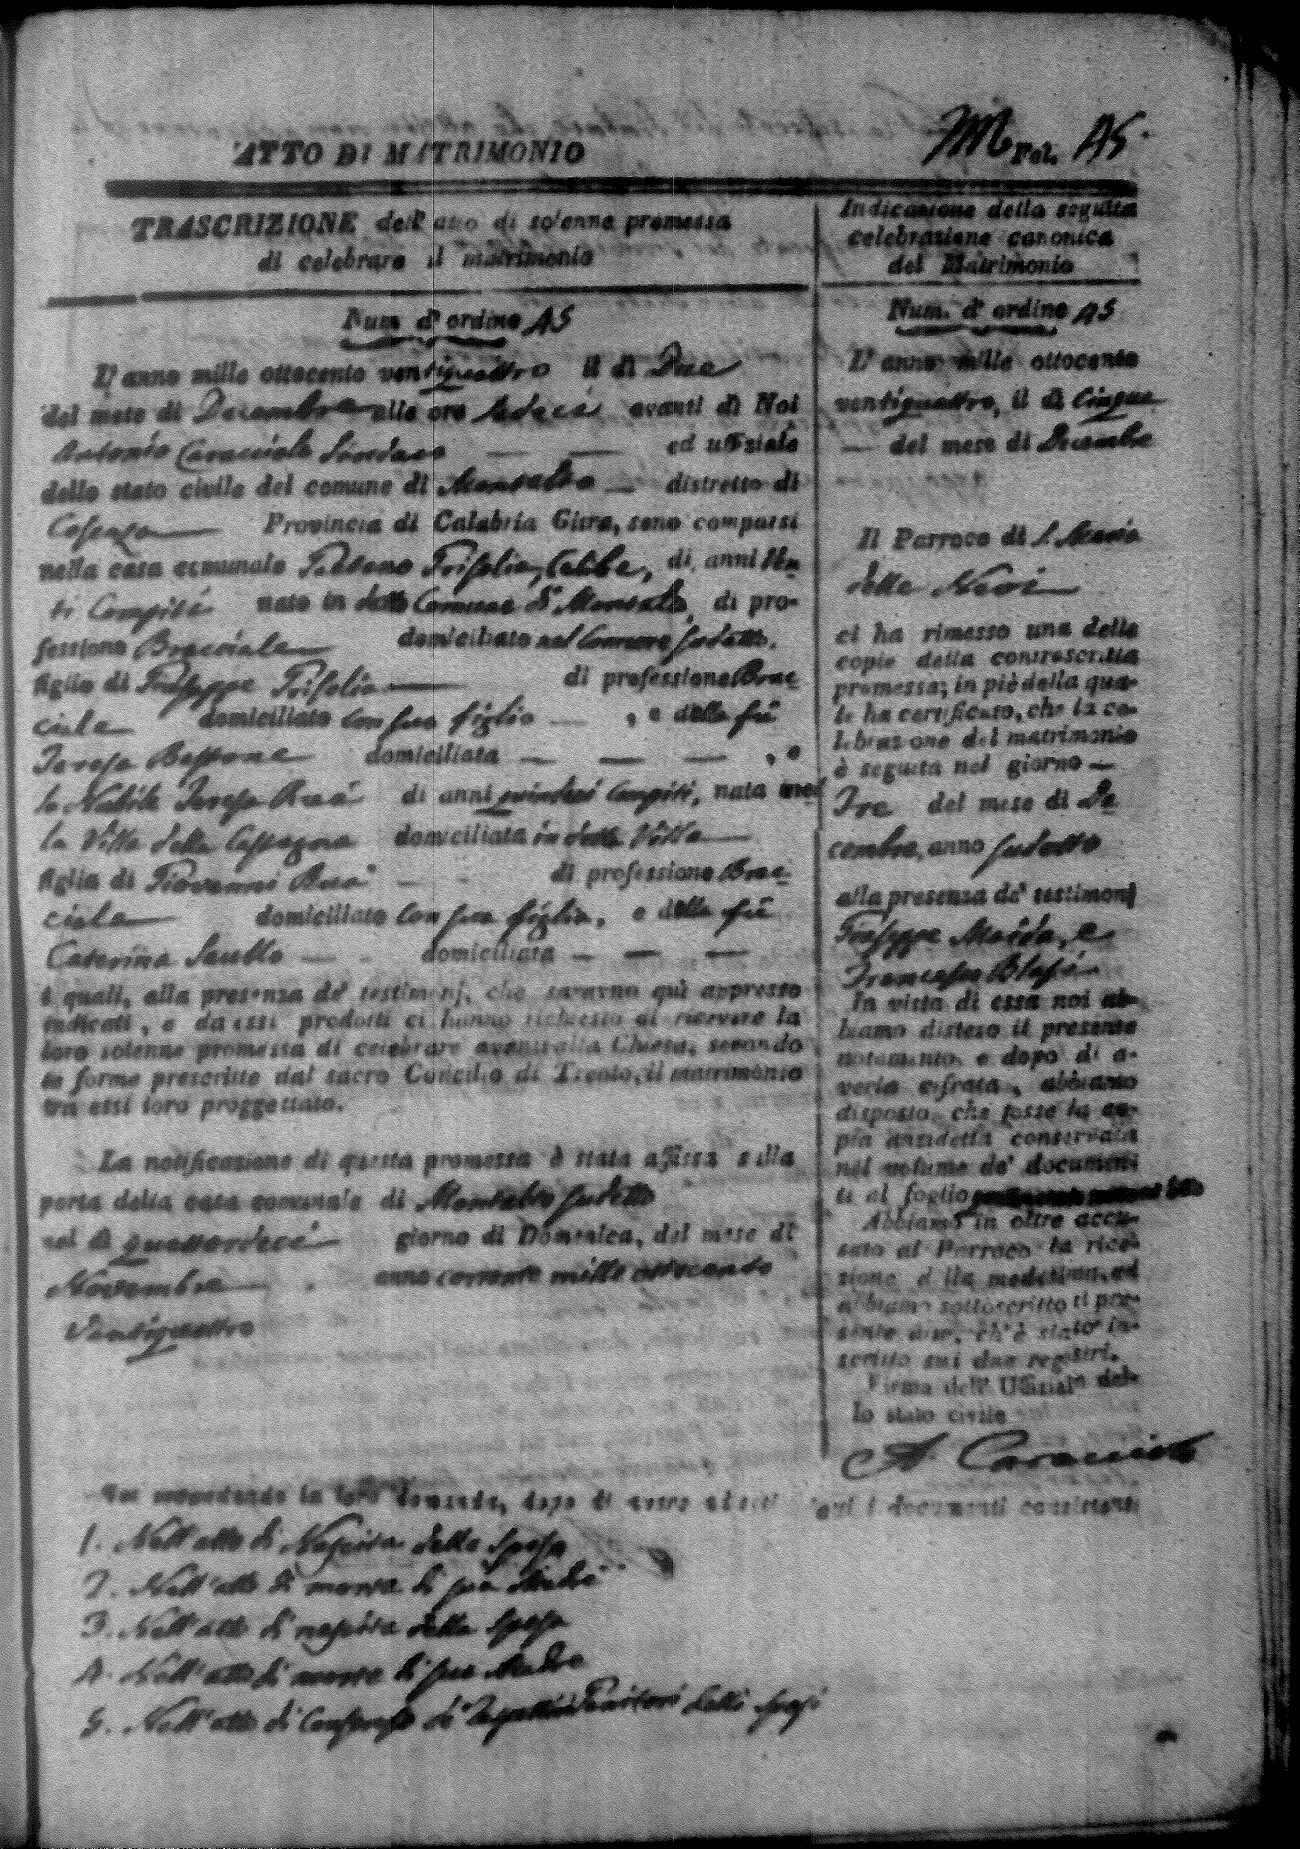 ATTO DI MATRIMONIO
Fol. 45.
TRASCRIZIONE dell' atto di solenne promessa
di celebrare il matrimonio
Num. d' ordine 45
L' anno mille ottocento ventiquattro il di Due
del mese di Decembre alle ore sedeci avanti di Noi
Antonio Caracciolo Sindaco ed uffiziale
dello stato civile del comune di Montalto distretto di
Cosenza Provincia di Calabria Citra, sono comparsi
nella casa comunale Trifolio, Celibe, di anni Ven-
ti Compiti nato in detto Comune di Montalto, di pro-
fessione Bracciale domiciliato nel Comune sudetto,
figlio di Giuseppe Trifolio di professione Brac
ciale domiciliato con suo figlio , e della fù
Teresa domiciliata , e
la Nubile Teresa Ruà di anni quindeci compiti, nata nel
la Villa della domiciliata in detta Villa
figlia di Giovanni Ruà di professione Brac-
ciale domiciliato con sua figlia, e della fù
Caterina domiciliata
i quali, alla presenza de' testimonj, che saranno quì appresso
indicati, e da essi prodotti ci hanno richiesto di ricevere la
loro solenne promessa di celebrare avanti alla Chiesa, secondo
le forme prescritte dal sacro Concilio di Trento, il matrimonio
tra essi loro proggettato.
La notificazione di questa promessa è stata affissa sulla
porta della casa comunale di Montalto sudetto
nel di quattordeci giorno di Domenica, del mese di
Novembre anno corrente mille ottocento
Ventiquattro
Noi secondando la loro domanda, dopo di avere
i documenti consistenti
1. Nell'atto di Nascita dello Sposo
2. Nell'atto di morte di sua Madre
3. Nell'atto di nascita della Sposa
4. Nell'atto di morte di sua Madre
5. Nell'atto di Consenso de' rispettivi Genitori delli sposi
Indicazione della seguita
celebrazione canonica
del Matrimonio
Num. d' ordine 45
L' anno mille ottocento
ventiquattro, il di Cinque
del mese di Decembre
Il Parroco di S. Maria
della Nevi
ci ha rimesso una delle
copie della controscritta
promessa; in piè della qua-
le ha certificato, che la ce-
lebrazione del matrimonio
è seguita nel giorno
Tre del mese di De
cembre, anno sudetto
alla presenza de' testimonj
Giuseppe e
Francesco
In vista di essa noi ab-
biamo disteso il presente
notamento, e dopo di a-
verla cifrata, abbiamo
disposto, che fosse la co-
pia anzidetta conservata
nel volume de' documen-
ti al foglio
Abbiamo in oltre accu-
sato al Parroco la rice-
zione della medesima, ed
abbiamo sottoscritto il pre-
sente atto, ch' è stato in-
scritto sui due registri.
Firma dell' Uffiziale del-
lo stato civile
A Caracciolo